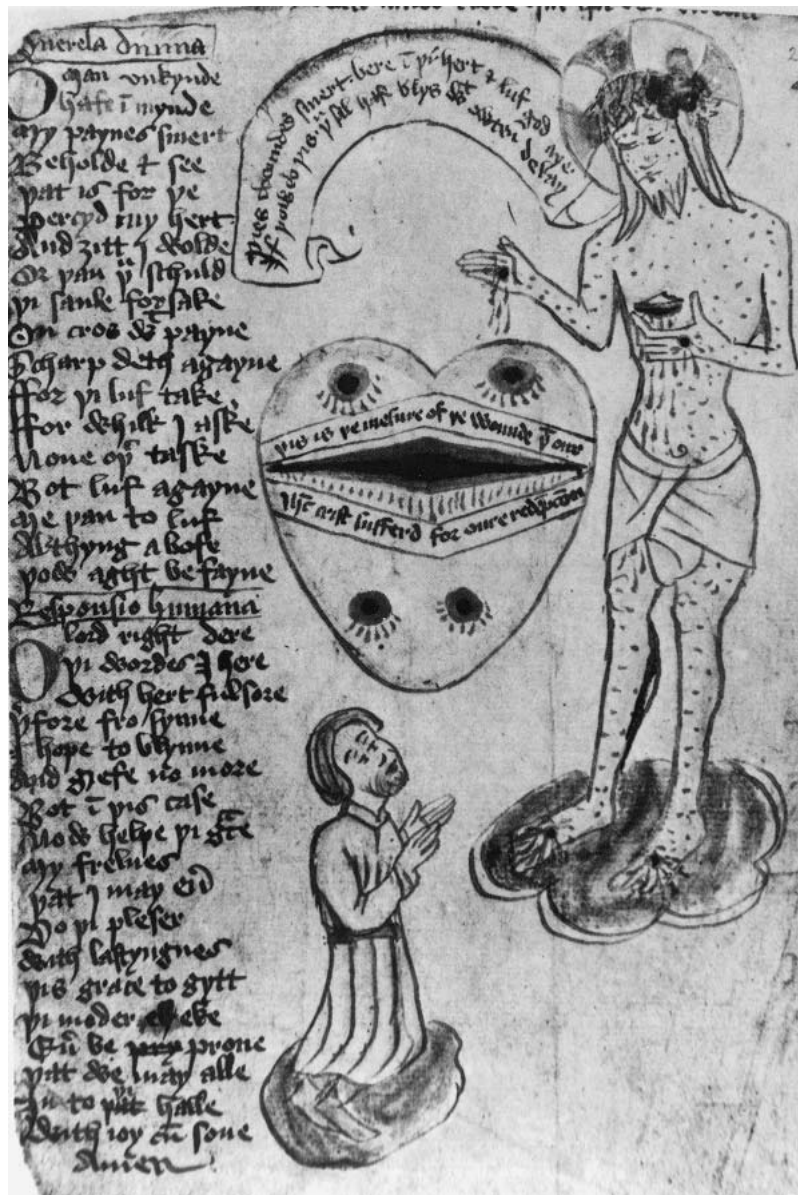 Querela diuina
O man vnkynde
hafe ī mynde
my paynes smert
Beholde & see
þat is for þe
percyd my hert
And ȝitt I wolde
Or þan þu schuld
þi saule forsake
On cros wt payne
Scharp deth agayne
ffor þi luf take
ffor whilk I aske
None oþr taske
Bot luf agayne
me þan to luf
Al thyng a bofe
þow aght be fayne
Responsio humana
O lord right dere
þi wordes I here
With hert ful sore
þrfore fro synne
I hope to blynne
And grefe no more
Bot ī þis case
Now helpe þi gᵃce
my frelnes
þat I may eur
Do þi pleser
With lastyngnes
þis grace to gytt
þi moder eke
Eur be prone
þat we may alle
In to þat halle
With ioy cū sone
Amen
þies woundes smert bere ī þi hert & luf god aye
If þow do þis þu sal haf blys wt owten delay
þis is þe mesure of þe wounde þt our
Ihc crist sufferd for oure redẽpcon